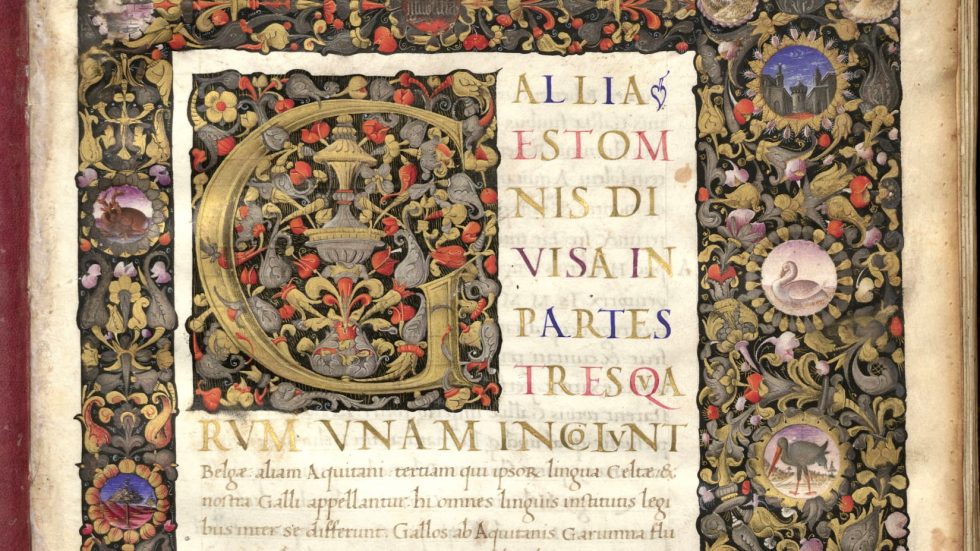 GALLIA
EST OM
NIS DI
VISA IN
PARTES
TRES QVA
RVM VNAM INCOLVNT
Belgæ aliam Aquitani tertiam qui ipsor lingua Celtæ &
nostra Galli appellantur. hi omnes linguis institutis legi
bus inter se differunt. Gallos ab Aquitanis Garumna flu